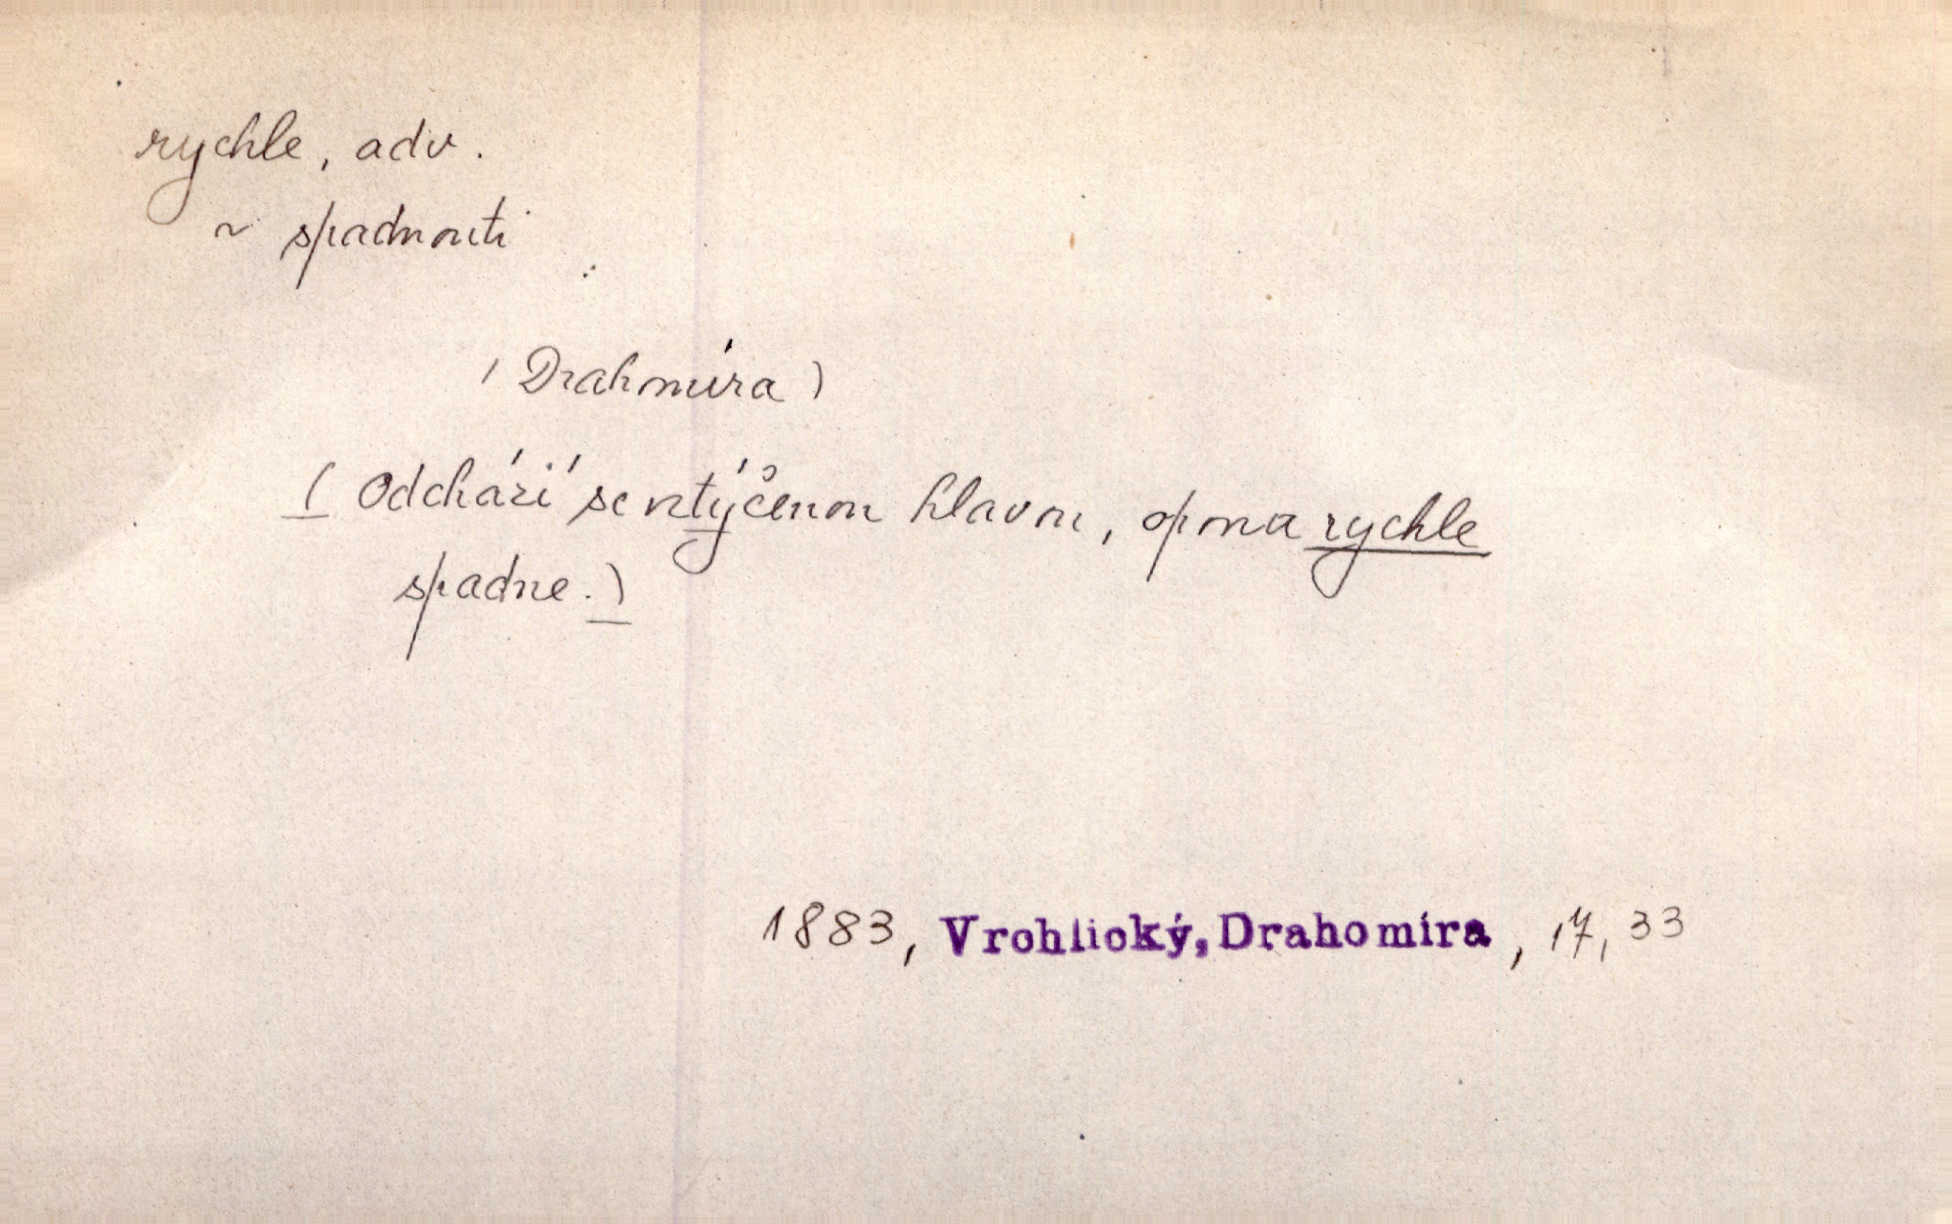 rychle, adv.
~ spadnouti
(Drahmíra)
(Odchází se vztýčenou hlavou, opona rychle
spadne.)
1883, Vrchlický, Drahomíra, 17, 33